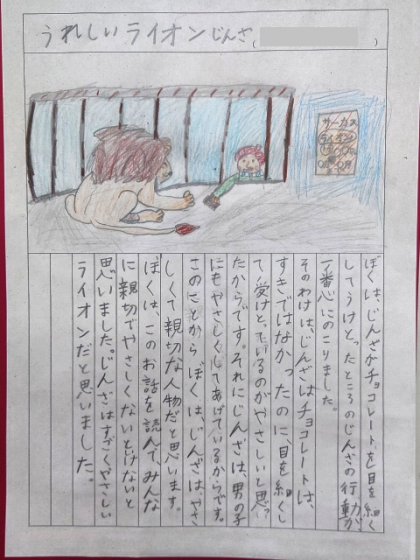 うれしいライオンじんざ(
サーカス
ライオン
ぼくは、じんざがチョコレートを目を細く
してうけとったところのじんざの行動が
一番心にのこりました。
そのわけは、じんざはチョコレートは、
すきではなかったのに、目を細くし
て、受けとっているのがやさしいと思っ
たからです。それにじんざは、男の子
にもやさしくしてあげているからです。
このことからぼくは、じんざは、やさ
しくて親切な人物だと思います。
ぼくは、このお話を読んでみんな
に親切でやさしくないといけないと
思いました。じんざはすごくやさしい
ライオンだと思いました。